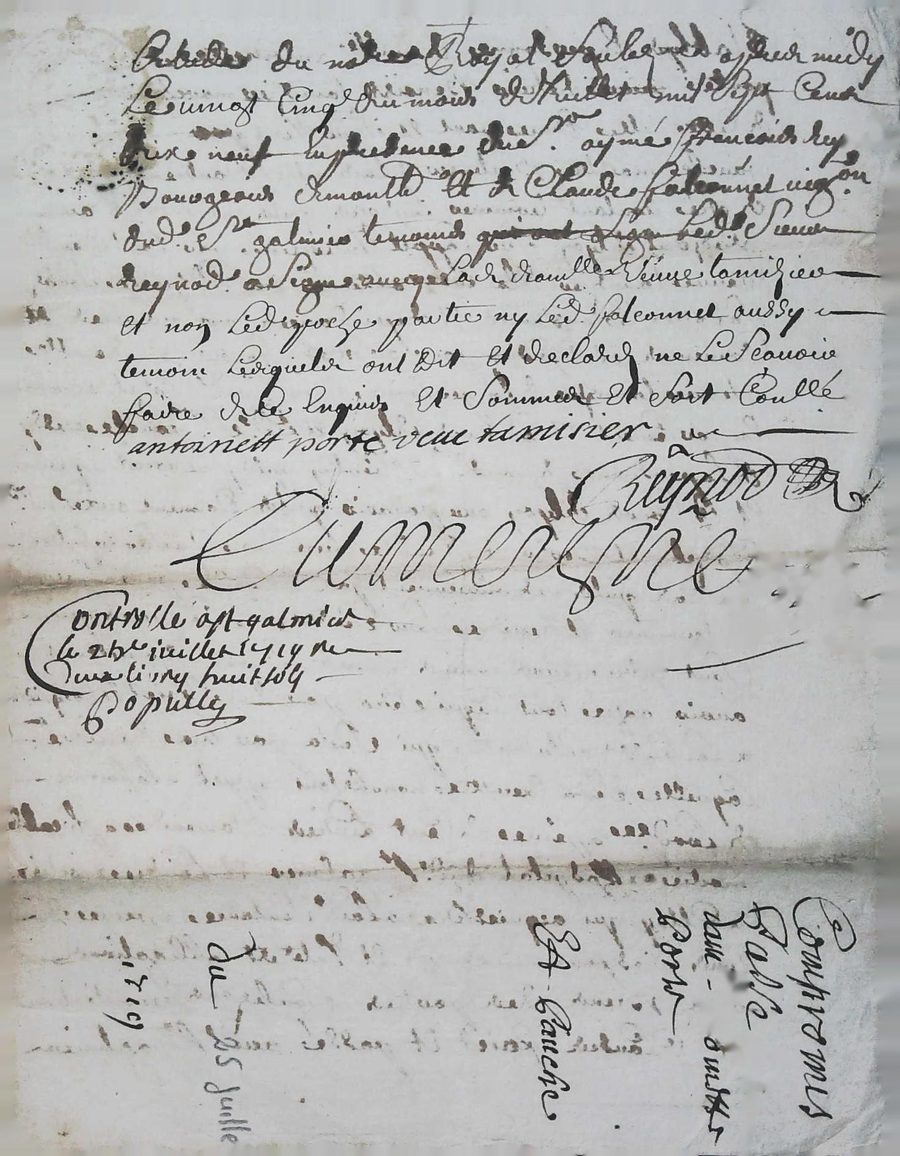 Estude du no.re Royal soubz.ne apres midy
Le vingt cinq.e du mois de Juillet mil sept cens
dix neuf En presence du S.r aymé francois Rey
Bourgeois et de Claude falconnet vig.on
dud. S.t galmier temoins qui ont signe led. Sieur
Reynod a Signe avecq lad. dam.lle veuve tamizier
et non led. partie ny led. falconnet aussy
temoin Lesquels ont dit et declaré ne le Scavoir
faire de ce Enquis Et Sommes Et Sort Coullé
antoinett porte veuve tamisier
Reynod
Cumergne
Controlle a st galmier
le 25e juillet 1719 re
livre huit sols
Populle
Compromis
Passe
dame
Porte
Et Cauche
du 25 Juille
1719